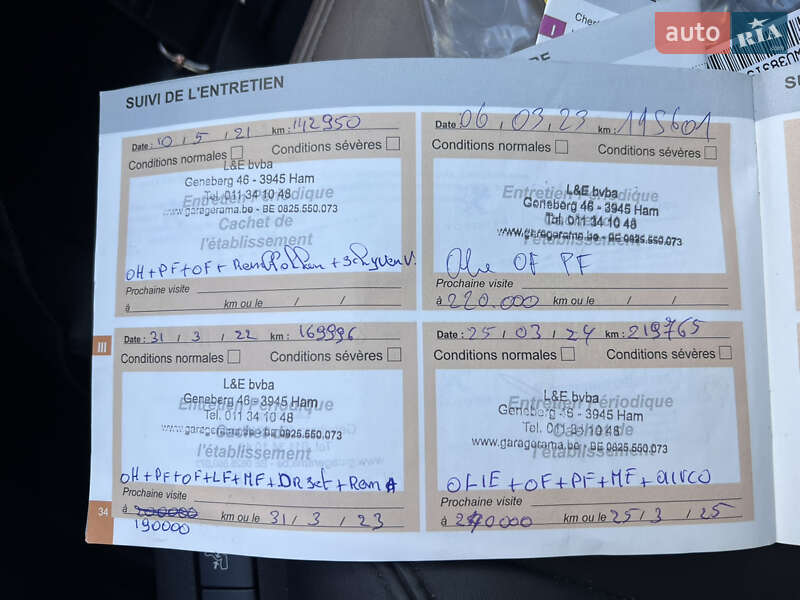 auto RIA
Che
SUIVI DE L'ENTRETIEN
Date : 10, 5, 21 km : 142950
Conditions normales Conditions sévères
L&E bvba
Geneberg 46 - 3945 Ham
Entretien Périodique
Tel. 011 34 10 48
www.garagerama.be - BE 0825.550.073
Cachet de
l'établissement
OH + PF + OF +
Prochaine visite
à km ou le / /
Date : 06, 03, 23 km : 195601
Conditions normales Conditions sévères
Entretien Périodique
L&E bvba
Geneberg 46 - 3945 Ham
Tel. 011 34 10 48
www.garagerama.be - BE 0825.550.073
l'établissement
Olie OF PF
Prochaine visite
à 220.000 km ou le / /
III
Date : 31, 3, 22 km : 169996
Conditions normales Conditions sévères
L&E bvba
Geneberg 46 - 3945 Ham
Entretien Périodique
Tel. 011 34 10 48
www.garagerama.be - BE 0825.550.073
Cachet de
l'établissement
OH + PF + OF + LF + MF + DR set + Rem A
Prochaine visite
à 200000 km ou le 31 / 3 / 23
190000
Date : 25, 03, 24 km : 219765
Conditions normales Conditions sévères
L&E bvba
Entretien Périodique
Geneberg 46 - 3945 Ham
Tel. 011 34 10 48
Cachet de
www.garagerama.be - BE 0825.550.073
l'établissement
OLIE + OF + PF + MF + airco
Prochaine visite
à 240000 km ou le 25 / 3 / 25
34